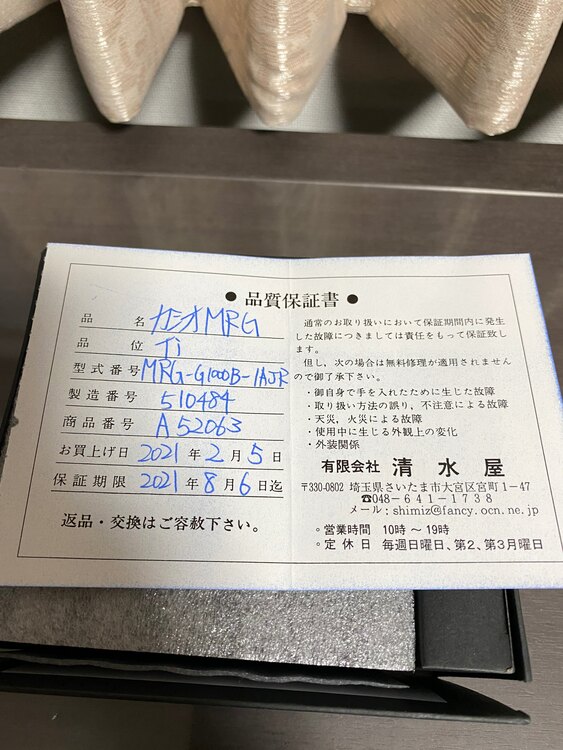 ● 品質保証書 ●
品 名 カシオMRG
品 位 Ti
型式番号 MRG-G1000B-1AJR
製造番号 510484
商品番号 A52063
お買上げ日 2021 年 2 月 5 日
保証期限 2021 年 8 月 6 日迄
返品・交換はご容赦下さい。
通常のお取り扱いにおいて保証期間内に発生
した故障につきましては責任をもって保証致し
ます。
但し、次の場合は無料修理が適用されません
ので御了承下さい。
・御自身で手を入れたために生じた故障
・取り扱い方法の誤り、不注意による故障
・天災，火災による故障
・使用中に生じる外観上の変化
・外装関係
有限会社 清水屋
〒330-0802 埼玉県さいたま市大宮区宮町1-47
☎048-641-1738
メール：shimiz@fancy.ocn.ne.jp
◦営業時間 10時～19時
◦定休日 毎週日曜日、第2、第3月曜日